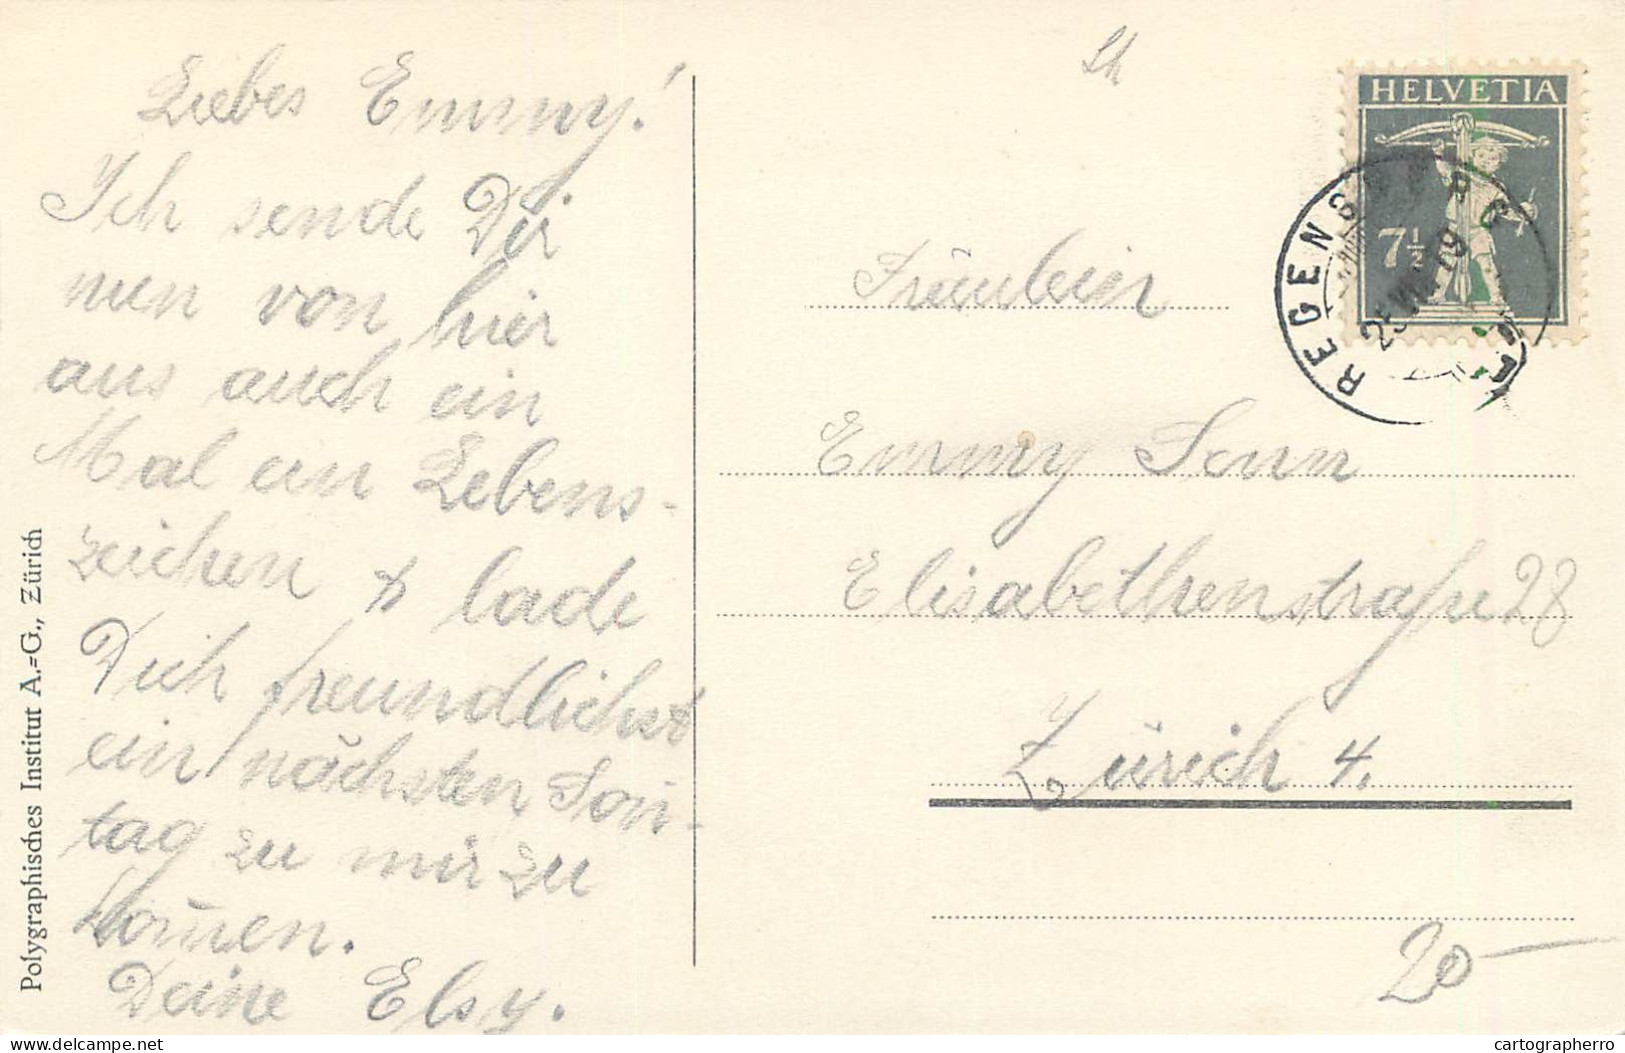 Liebes Emmy!
Ich sende Dir
nun von hier
aus auch ein
Mal ein Lebens-
zeichen & lade
Dich freundlichst
ein nächsten Son-
tag zu mir zu
kom̄en.
Deine Elsy.
Polygraphisches Institut A.=G., Zürich
HELVETIA
7½
REGENSBERG
Fräulein
Emmy Senn
Elisabethenstraße 28
Zürich 4.
20—
delcampe.net
cartographerro